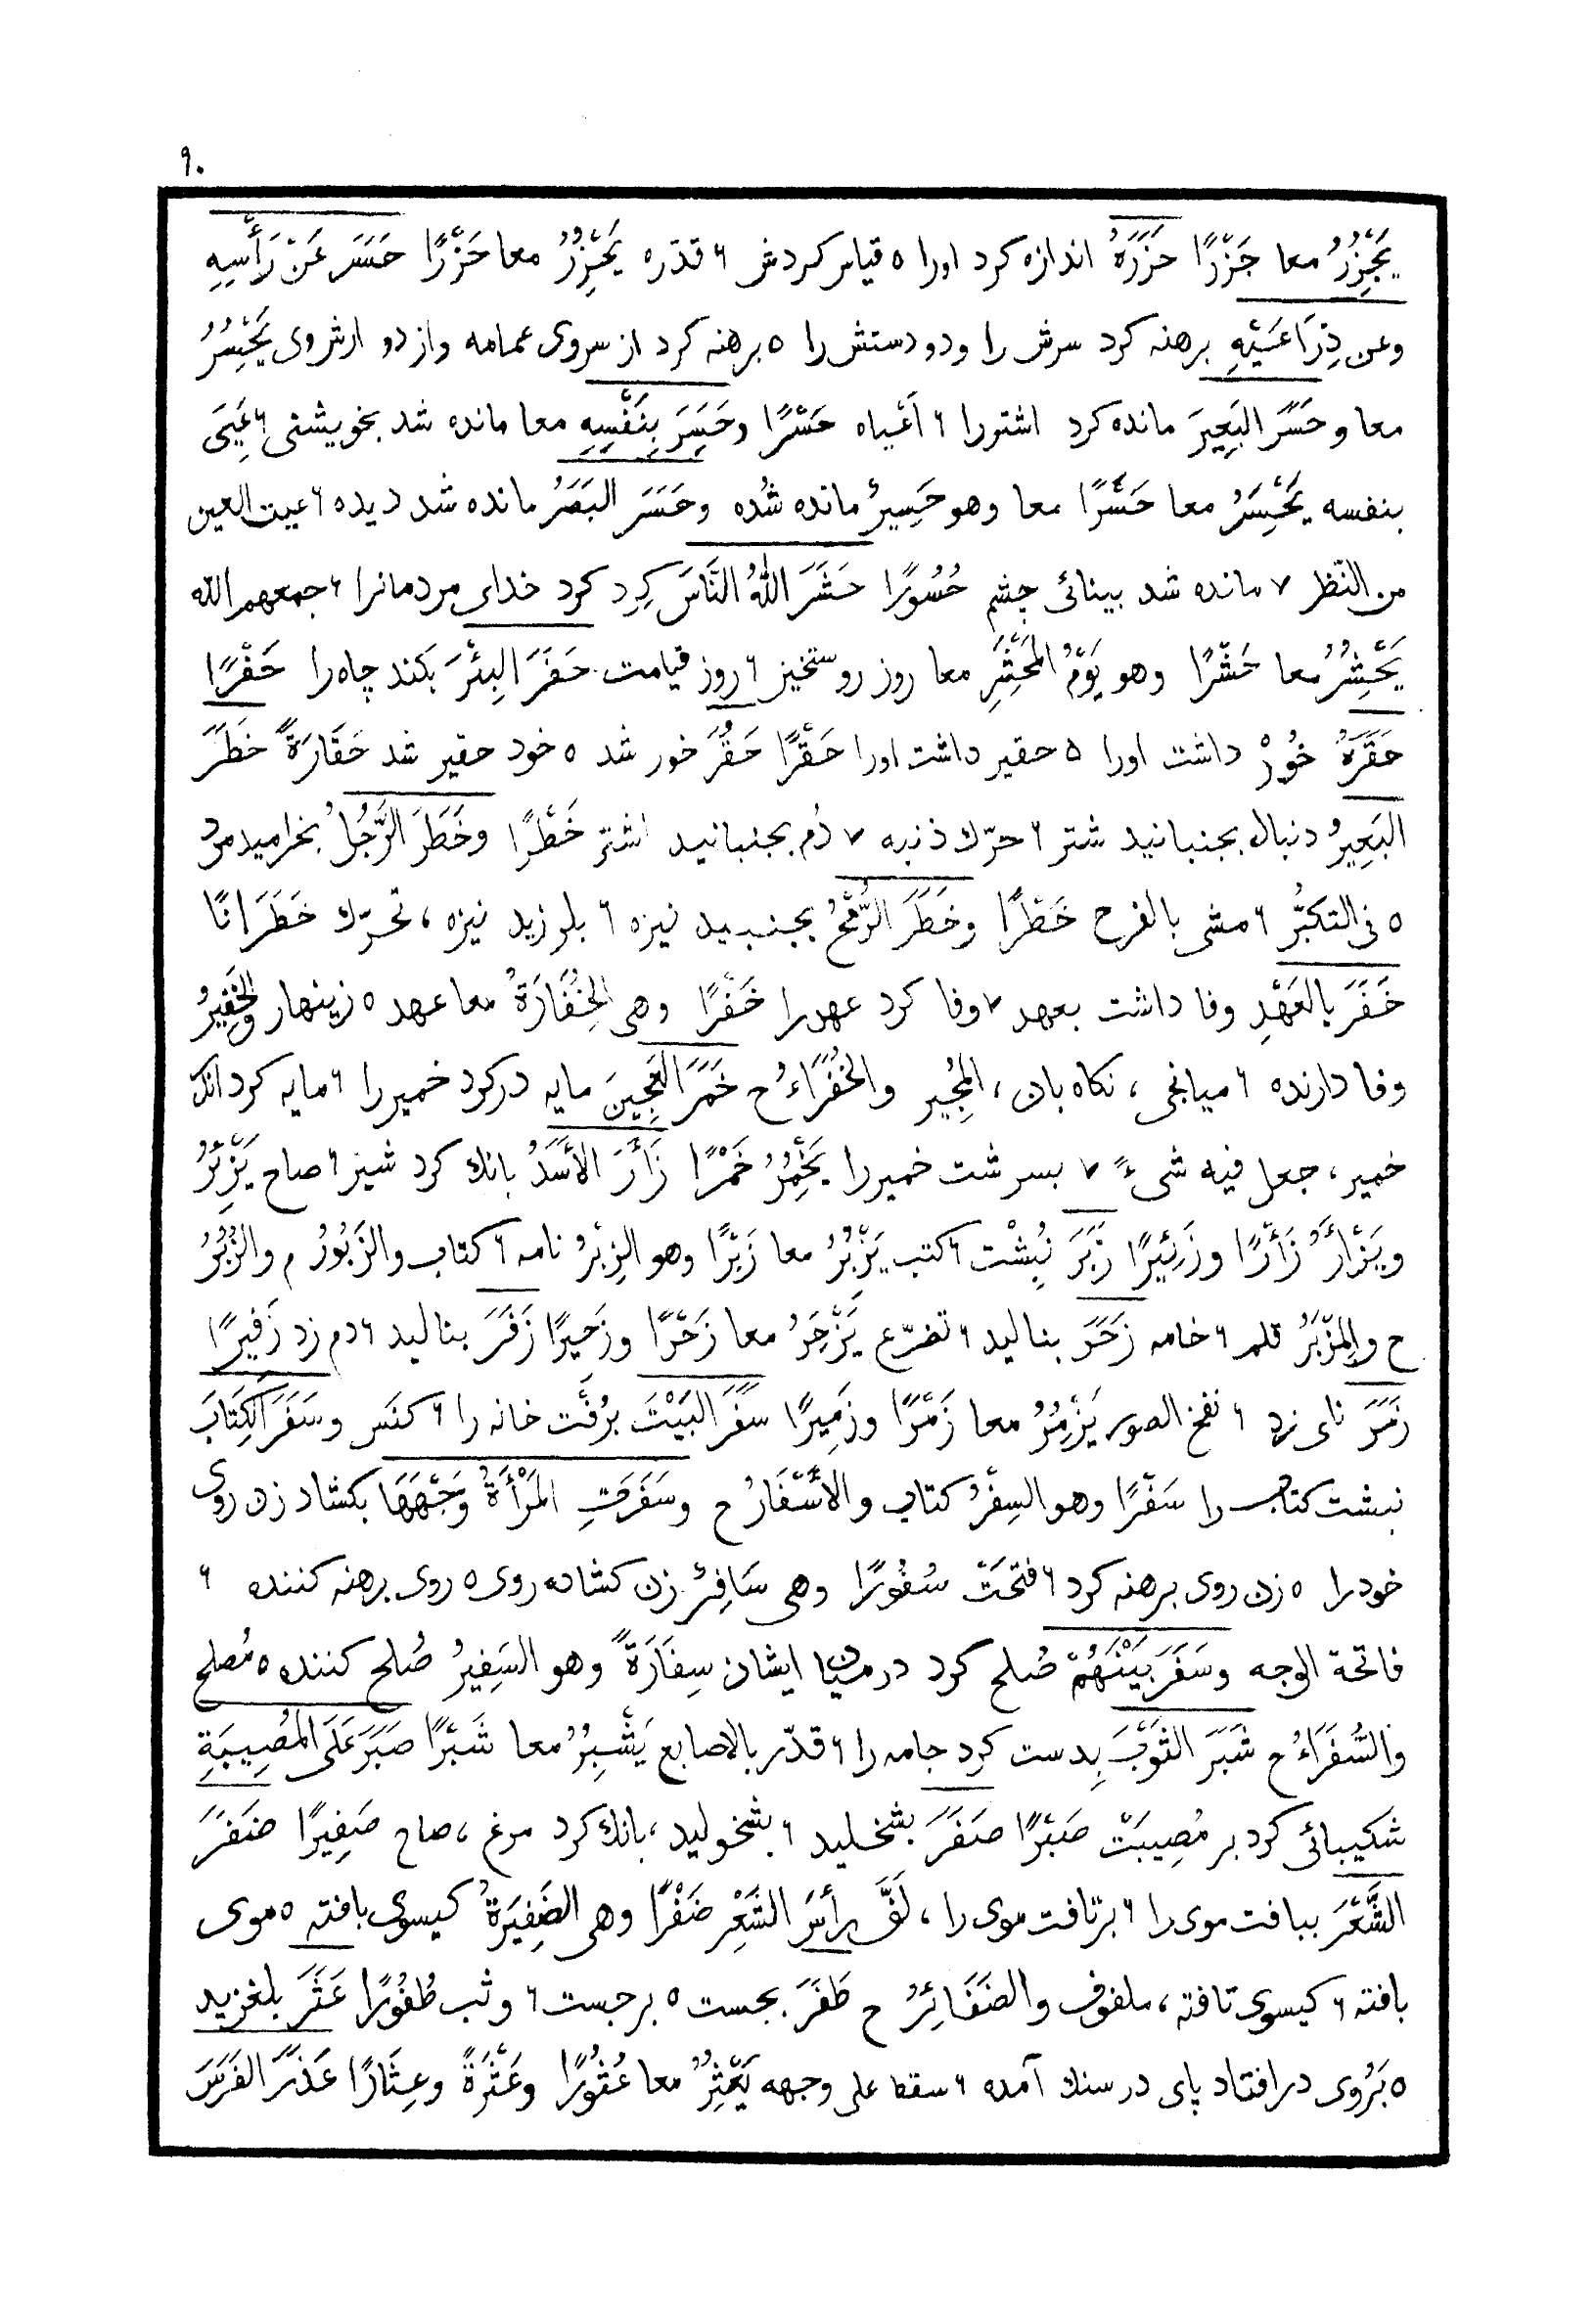 ٩٠
يَجْزِرُ معا جَزْرًا حَزَرَهُ اندازه كرد اورا ٥ قياس كردش ٦ قدّره يَحْزِرُ معا حَزْرًا حَسَرَ عَنْ رَأْسِهِ
وعن ذِرَاعَيْهِ برهنه كرد سرش را ودودستش را ٥ برهنه كرد از سروى عمامه واز دو ارش وى يَحْسِرُ
معا و حَسَرَ البَعِيرَ مانده كرد اشتورا ٦ أعْياه حَسْرًا وحَسِرَ بِنَفْسِهِ معا مانده شد بخويشتى ٦ عَيِيَ
بنفسه يَحْسِرُ معا حَسْرًا معا وهو حَسِيرٌ مانده شُده وحَسَرَ البَصَرُ مانده شد ديده ٦ عييت العين
من النّظر ٧ مانده شد بينائى چشم حُسُورًا حَشَرَ اللهُ النَّاسَ كِرد كرد خداى مردمانرا ٦ جمعهم الله
يَحْشِرُ معا حَشْرًا وهو يَوْمُ المَحْشَرِ معا روز روستخيز ٦ روز قيامت حَفَرَ البِئْرَ بكند چاه را حَفْرًا
حَقَرَهُ خُوْرْ داشت اورا ٥ حقير داشت اورا حَقْرًا حَقُرَ خور شد ٥ خود حقير شد حَقَارَةً خَطَرَ
البَعِيرُ دنبال بجنبانيد شتر ٦ حرّك ذنبه ٧ دُم بجنبانيد اشتر خَطْرًا وخَطَرَ الرَّجُلُ بخراميد مرد
٥ فى التكبّر ٦ مشى بالفرح خَطْرًا وخَطَرَ الرُّمْحُ بجنبيد نيزه ٦ بلرزيد نيزه ، تحرّك خَطَرَانًا
خَفَرَ بِالعَهْدِ وفا داشت بعهد ٧ وفا كرد عهدرا خَفْرًا وهى الخُفَارَةُ معا عهد ٥ زينهار والخَفِيرُ
وفا دارنده ٦ ميانجى ، نكاه بان ، المُجِير والخُفَرَاءُ ح خَمَرَ العَجِينَ مايه دركرد خمير را ٦ مايه كرد اندر
خمير ، جعل فيه شىءً ٧ بسرشت خميررا يَخْمِرُ خَمْرًا زَأَرَ الأَسَدُ بانك كرد شير ٦ صاح يَزْئِرُ
ويَزْأَرُ زَأْرًا وزَئِيرًا زَبَرَ نِبِشْت ٦ كتب يَزْبُرُ معا زَبْرًا وهو الزِبْرُ نامه ٦ كتاب والزَبُورُ م والزُبُرُ
ح والمِزْبَرُ قلم ٦ خامه زَحَرَ بناليد ٦ تضرّع يَزْحَرُ معا زَحْرًا وزَحِيرًا زَفَرَ بناليد ٦ دم زد زَفِيرًا
زَمَرَ ناى زد ٦ نفخ الصور يَزْمِرُ معا زَمْرًا وزَمِيرًا سَفَرَ البَيْتَ برُفَت خانه را ٦ كنَس وسَفَرَ الكِتَابَ
نبشت كتاب را سَفْرًا وهو السِفْرُ كتاب والأَسْفَارُ ح وسَفَرَتِ المَرْأَةُ وَجْهَهَا بكشاد زن روى
خود را ٥ زن روى برهنه كرد ٦ فتحَتْ سُفُورًا وهى سَافِرٌ زن كشاده روى ٥ روى برهنه كننده ٦
فاتحة الوجه وسَفَرَ بَيْنَهُمْ صُلح كرد درميان ايشان سِفَارَةً وهو السَفِيرُ صُلح كننده ٥ مُصلح
والسُّفَرَاءُ ح شَبَرَ الثَوْبَ بِدست كرد جامه را ٦ قدّر بالاصابع يَشْبِرُ معا شَبْرًا صَبَرَ عَلَى المُصِيبَةِ
شكيبائى كرد بر مُصِيبَتْ صَبْرًا صَفَرَ بشخليد ٦ بشخوليد ، بانك كرد مرغ ، صاح صَفِيرًا ضَفَرَ
الشَّعْرَ ببافت موى را ٦ برتافت موى را ، لَفَّ رأسَ الشَعْرِ ضَفْرًا وهى الضَفِيرَةُ كيسوى بافته ٥ موى
بافته ٦ كيسوى تافته ، ملفوف والضَفَائِرُ ح طَفَرَ بجست ٥ برجست ٦ وثب طُفُورًا عَثَرَ بلغزيد
٥ بَرُوى درافتاد پاى در سنك آمده ٦ سقط على وجهه يَعْثِرُ معا عُثُورًا وعَثْرَةً وعِثَارًا عَذَرَ الفَرَسَ